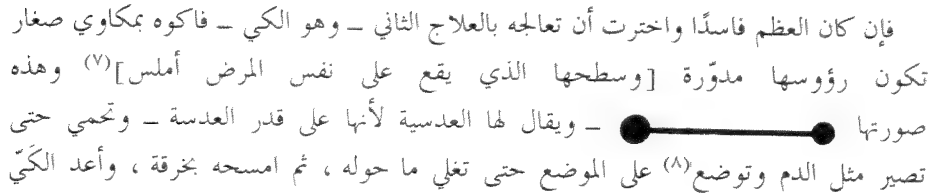 فإن كان العظم فاسدًا واخترت أن تعالجه بالعلاج الثاني ــ وهو الكي ــ فاكوه بمكاوي صغار
تكون رؤوسها مدوّرة [وسطحها الذي يقع على نفس المرض أملس](٧) وهذه
صورتها ــ ويقال لها العدسية لأنها على قدر العدسة ــ وتحمي حتى
تصير مثل الدم وتوضع(٨) على الموضع حتى تغلي ما حوله ، ثم امسحه بخرقة ، وأعد الكَيّ